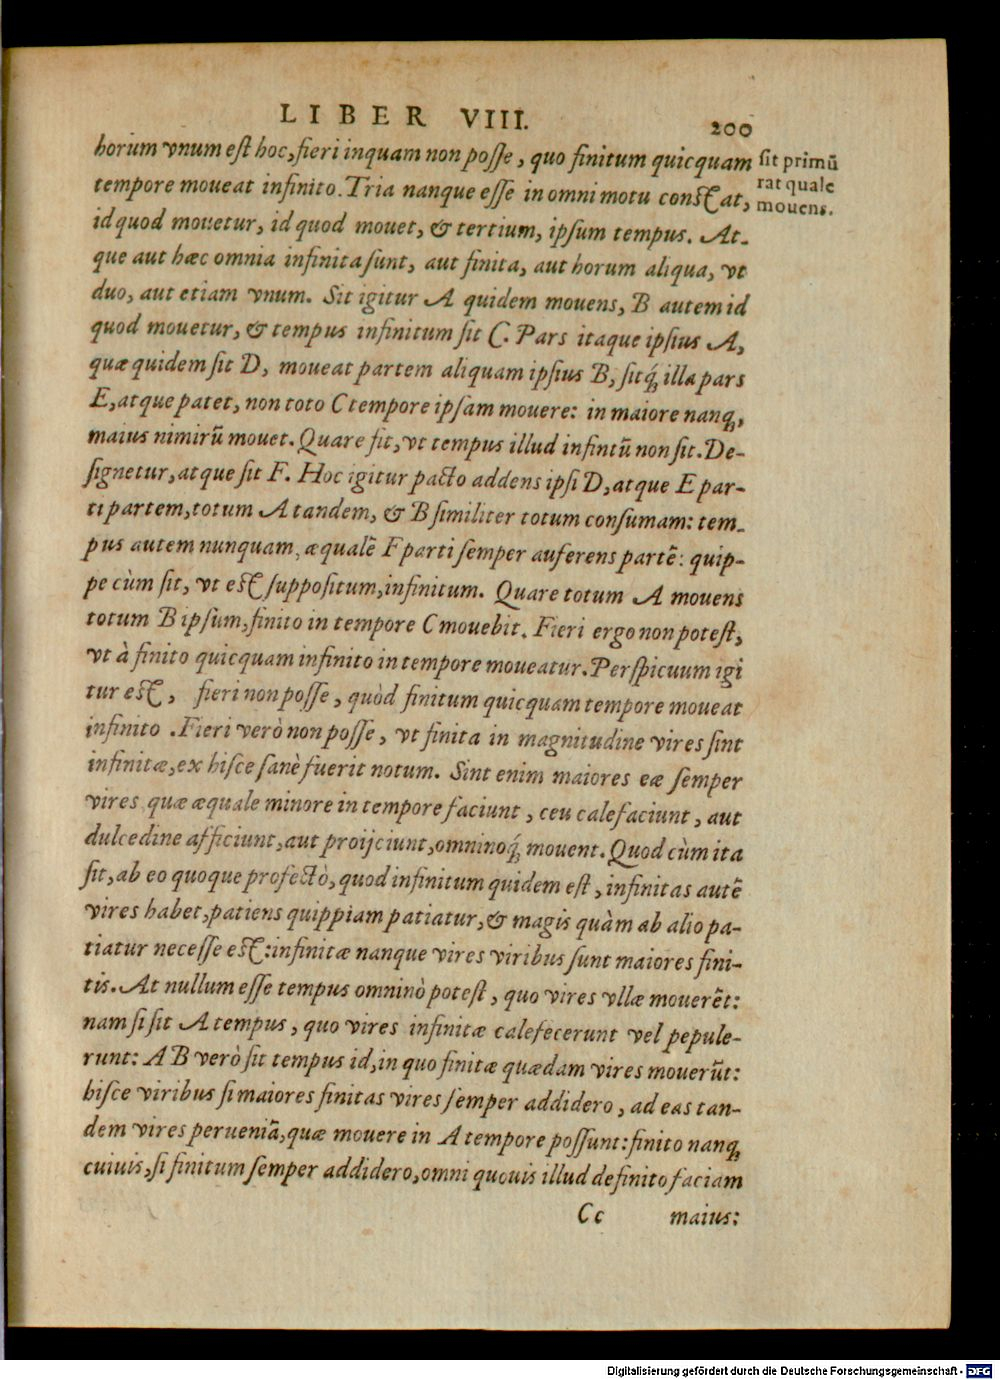 LIBER VIII.
200
horum vnum est hoc, fieri inquam non posse, quo finitum quicquam
tempore moueat infinito. Tria nanque esse in omni motu constat,
id quod mouetur, id quod mouet, & tertium, ipsum tempus. At-
que aut hæc omnia infinita sunt, aut finita, aut horum aliqua, vt
duo, aut etiam vnum. Sit igitur A quidem mouens, B autem id
quod mouetur, & tempus infinitum sit C. Pars itaque ipsius A,
quæ quidem sit D, moueat partem aliquam ipsius B, sitq́; illa pars
E, atque patet, non toto C tempore ipsam mouere: in maiore nanq;
maius nimirũ mouet. Quare fit, vt tempus illud infintũ non sit. De-
signetur, atque sit F. Hoc igitur pacto addens ipsi D, atque E par-
ti partem, totum A tandem, & B similiter totum consumam: tem-
pus autem nunquam, æqualẽ F parti semper auferens partẽ: quip-
pe cùm sit, vt est suppositum, infinitum. Quare totum A mouens
totum B ipsum, finito in tempore C mouebit. Fieri ergo non potest,
vt à finito quicquam infinito in tempore moueatur. Perspicuum igi
tur est, fieri non posse, quòd finitum quicquam tempore moueat
infinito. Fieri verò non posse, vt finita in magnitudine vires sint
infinitæ, ex hisce sanè fuerit notum. Sint enim maiores eæ semper
vires quæ æquale minore in tempore faciunt, ceu calefaciunt, aut
dulcedine afficiunt, aut proijciunt, omninoq́; mouent. Quod cùm ita
sit, ab eo quoque profectò, quod infinitum quidem est, infinitas autẽ
vires habet, patiens quippiam patiatur, & magis quàm ab alio pa-
tiatur necesse est: infinitæ nanque vires viribus sunt maiores fini-
tis. At nullum esse tempus omninò potest, quo vires vllæ mouerẽt:
nam si sit A tempus, quo vires infinitæ calefecerunt vel pepule-
runt: AB verò sit tempus id, in quo finitæ quædam vires mouerũt:
hisce viribus si maiores finitas vires semper addidero, ad eas tan-
dem vires perueniã, quæ mouere in A tempore possunt: finito nanq;
cuiuis, si finitum semper addidero, omni quouis illud definito faciam
Cc maius:
sit primũ
rat quale
mouens.
Digitalisierung gefördert durch die Deutsche Forschungsgemeinschaft - DFG